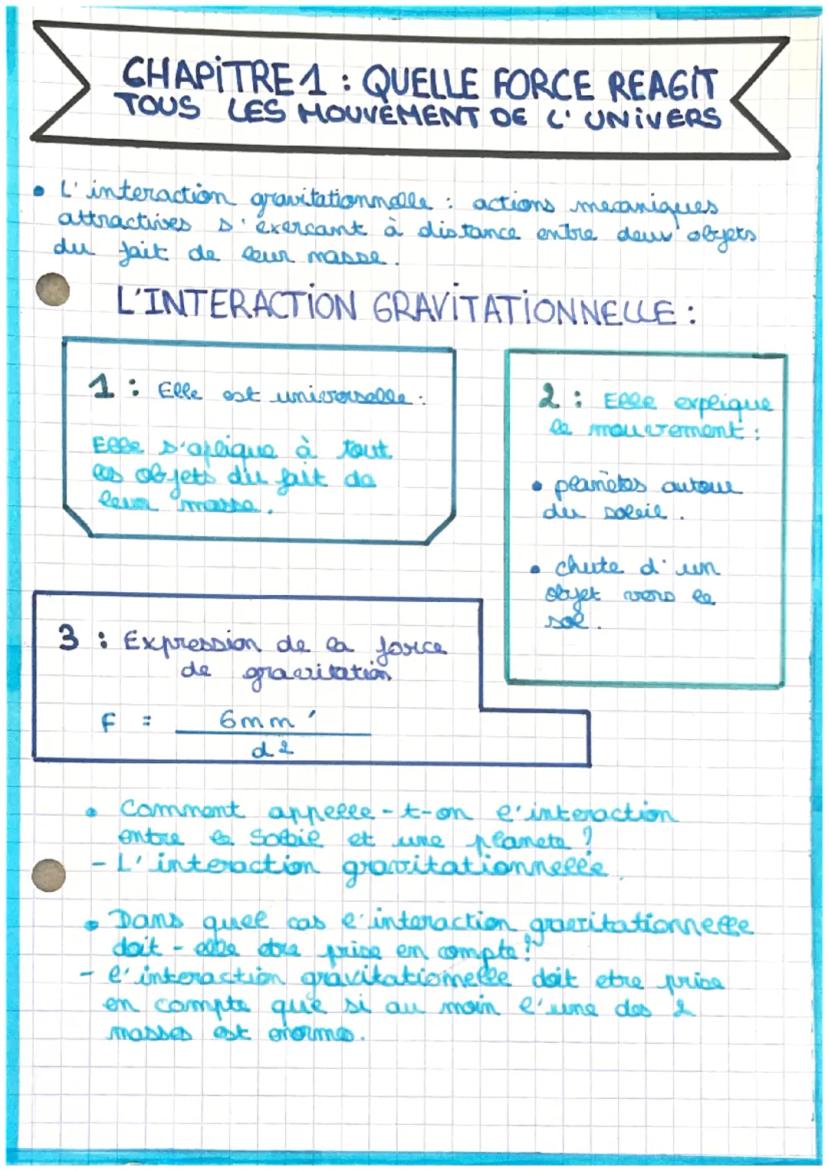 CHAPITRE 1 : QUELLE FORCE REAGIT
TOUS LES MOUVEMENT DE L' UNIVERS
• L'interaction gravitationnelle : actions mecaniques
attractives s'exercant à distance entre deux objets
du fait de leur masse.
L'INTERACTION GRAVITATIONNELLE :
1 : Elle est universelle :
Elle s'aplique à tout
les objets du fait de
leur masse.
2 : Elle explique
le mouvement :
• planètes autour
du soleil.
• chute d'un
objet vers le
sol.
3 : Expression de la force
de gravitation
F = 6mm'
d2
• Comment appelle-t-on l'interaction
entre le Soleil et une planete ?
- L'interaction gravitationnelle.
• Dans quel cas l'interaction gravitationnelle
doit-elle etre prise en compte?
- l'interaction gravitationelle doit etre prise
en compte que si au moin l'une des 2
masses est enorme.